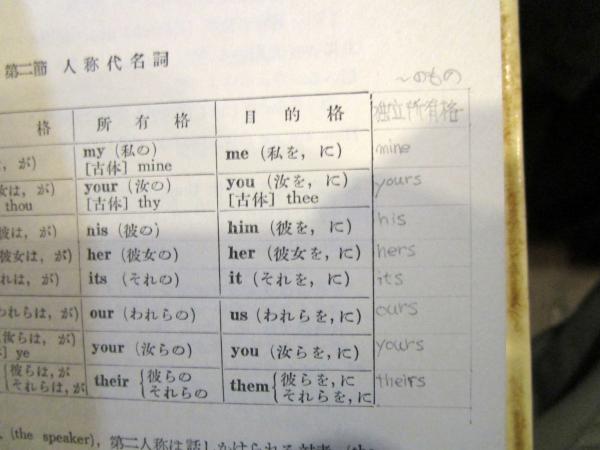 第二節 人称代名詞
～のもの
格 所有格 目的格 独立所有格
は, が) my (私の) me (私を, に) mine
[古体] mine
女は, が) your (汝の) you (汝を, に) yours
thou [古体] thy [古体] thee
彼は, が) nis (彼の) him (彼を, に) his
彼女は, が) her (彼女の) her (彼女を, に) hers
れは, が) its (それの) it (それを, に) its
われらは, が) our (われらの) us (われらを, に) ours
汝らは, が) your (汝らの) you (汝らを, に) yours
ye
彼らは, が their 彼らの them 彼らを, に theirs
それらは, が それらの それらを, に
(the speaker), 第二人称は話しかけられる対者